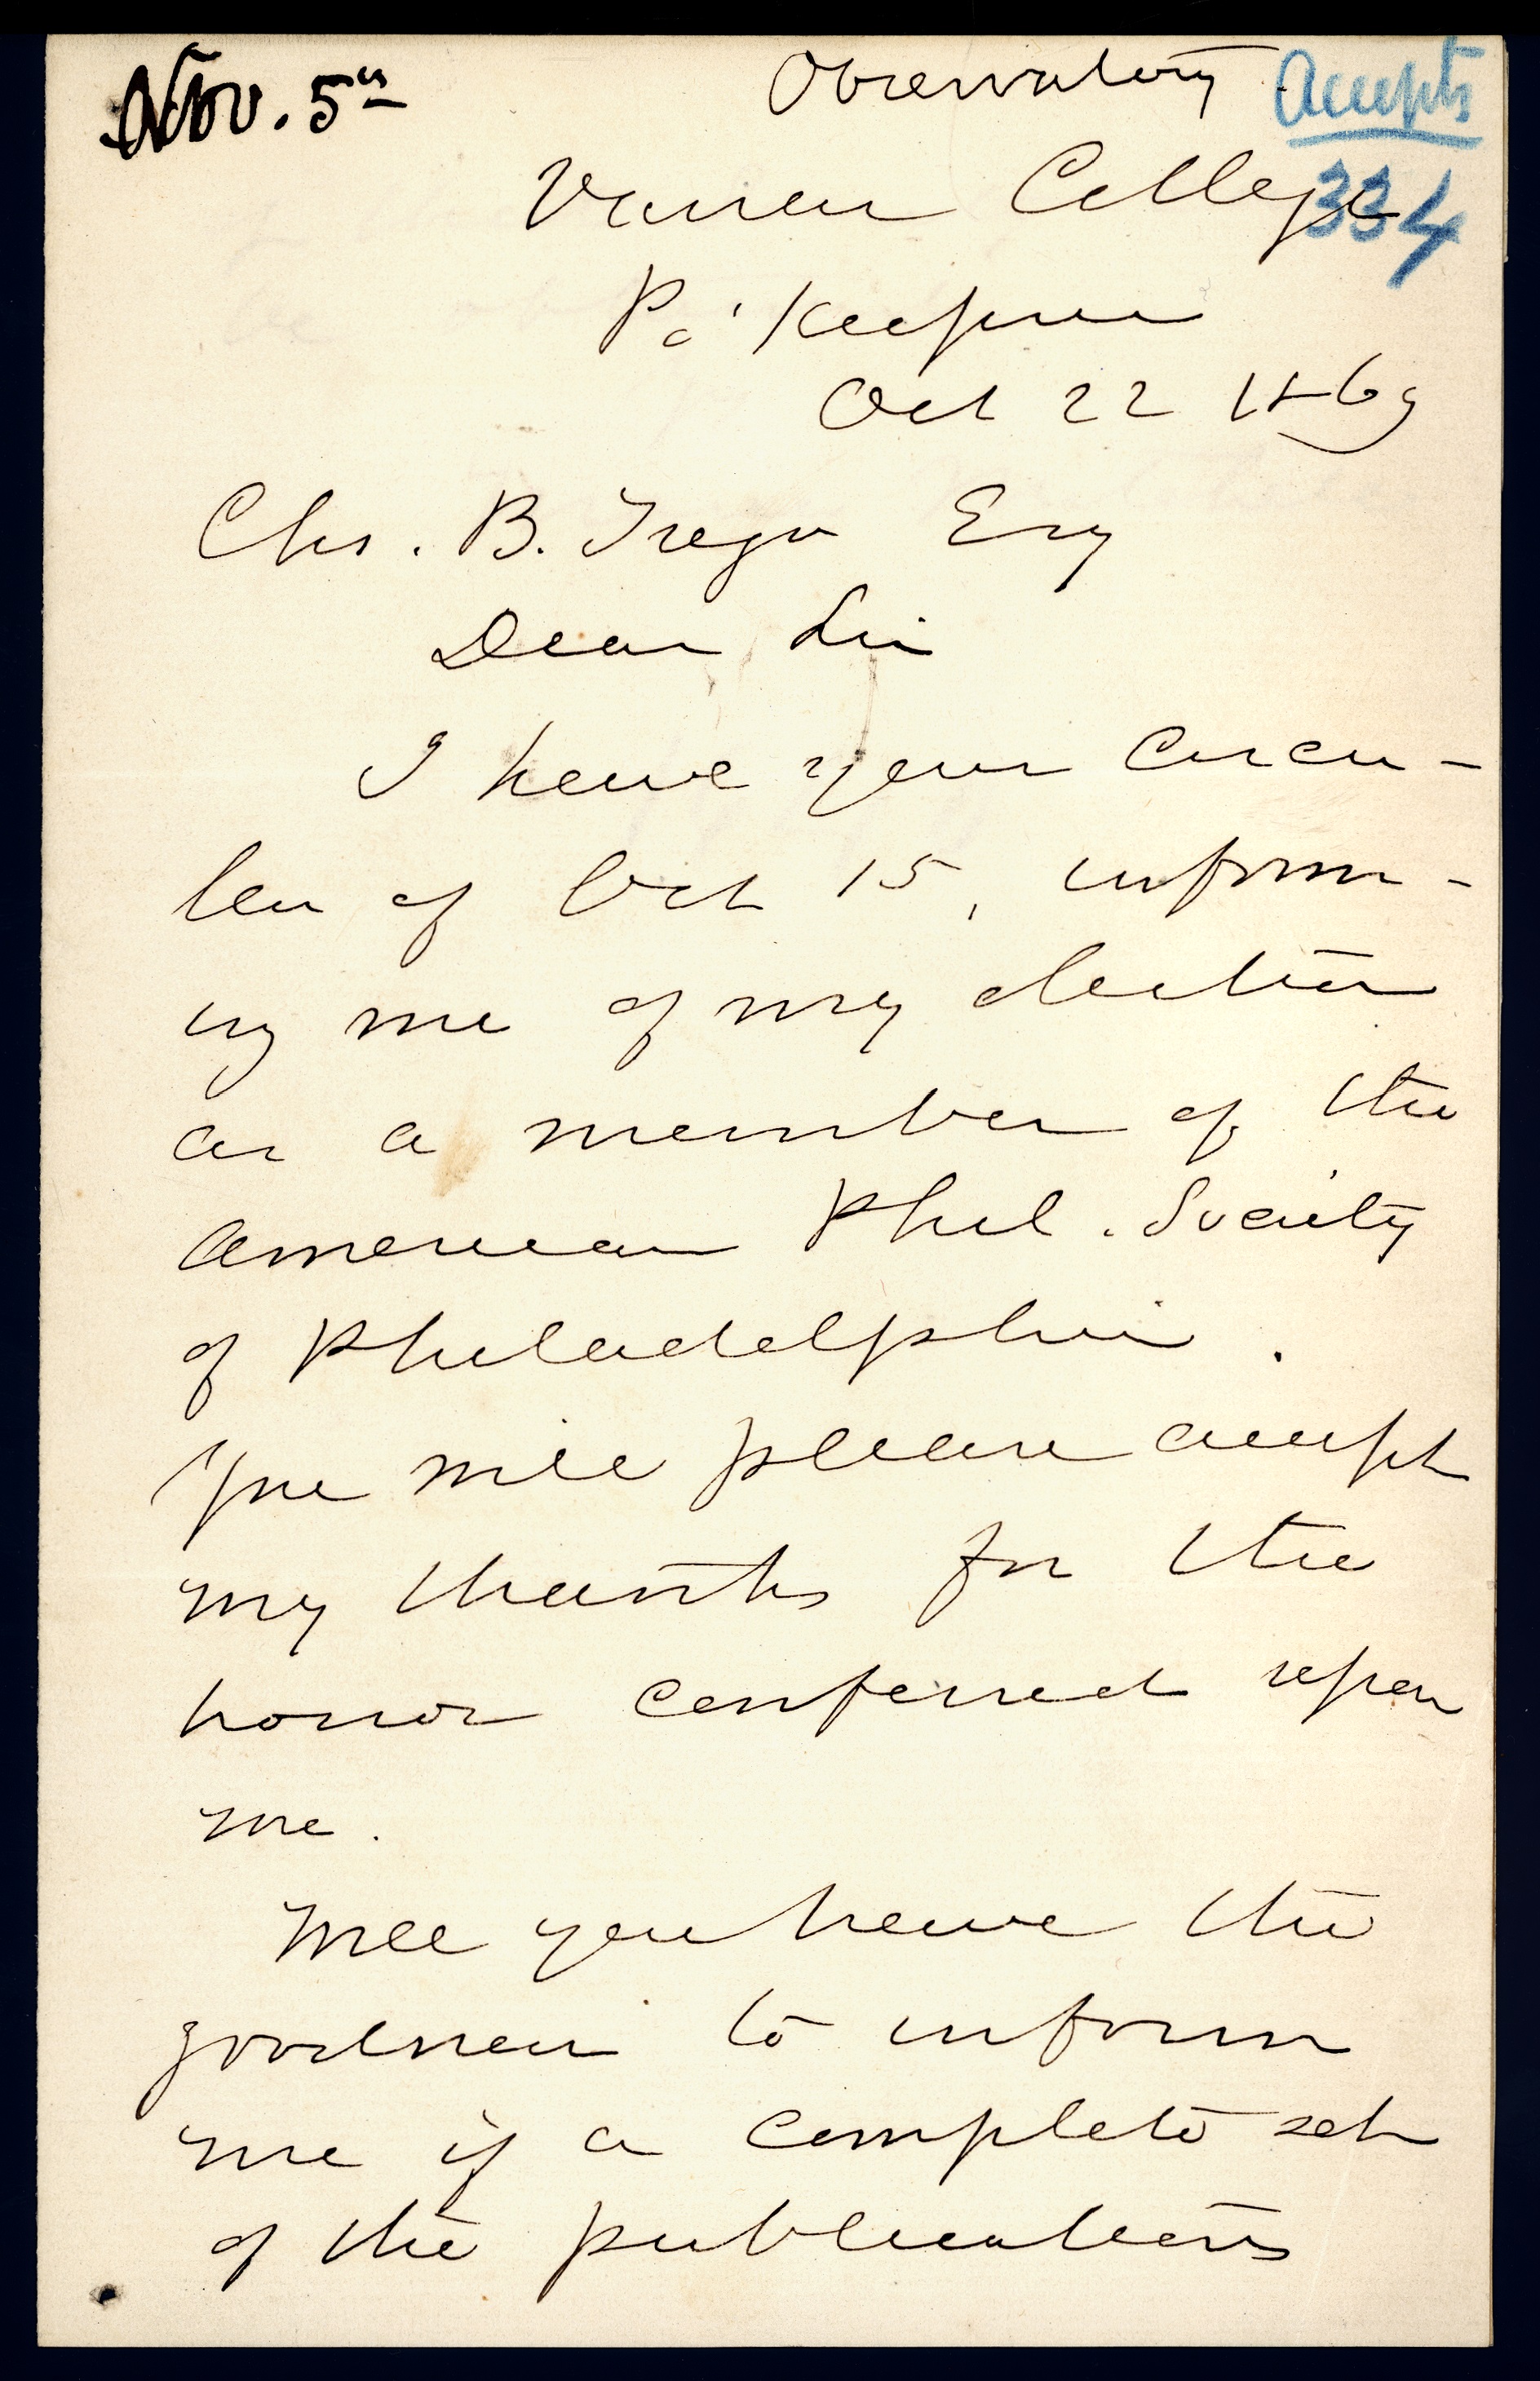 Nov. 5th
Observatory
Accepts
Vassar College
334
Po'Keepsie
Oct 22 1869
Chs. B. Trego Esq
Dear Sir
I have your circu-
lar of Oct 15, inform-
ing me of my election
as a member of the
American Phil. Society
of Philadelphia.
You will please accept
my thanks for the
honor conferred upon
me.
Will you have the
goodness to inform
me if a complete set
of the publications